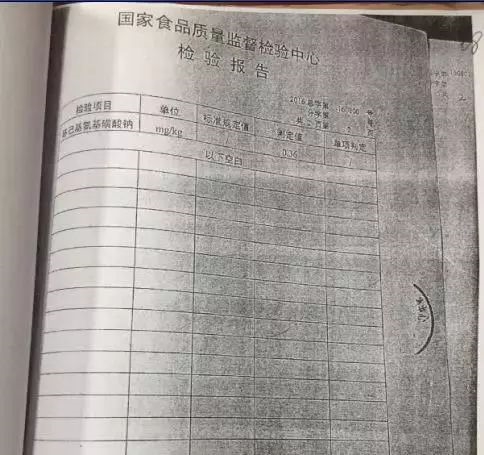 国家食品质量监督检验中心
检验报告
2016 总字第 号
分字第 号
共 2 页第 2 页
检验项目 单位 标准规定值 测定值 单项判定
环己基氨基磺酸钠 mg/kg / 0.36
以下空白